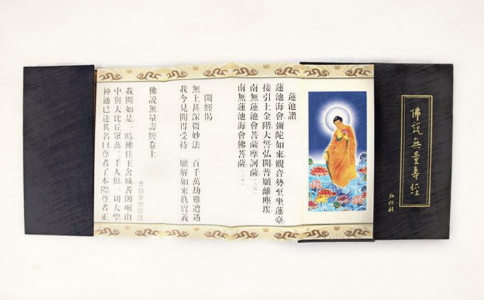 佛說無量壽經
弘化社
蓮池讚
蓮池海會彌陀如來觀音勢至坐蓮臺
接引上金階大誓弘開普願離塵埃
南無蓮池會菩薩摩訶薩
南無蓮池海會佛菩薩
開經偈
無上甚深微妙法 百千萬劫難遭遇
我今見聞得受持 願解如來真實義
佛說無量壽經卷上
我聞如是一時佛住王舍城耆闍崛山
中與大比丘眾萬二千人俱一切大聖
神通已達其名曰尊者了本際尊者正